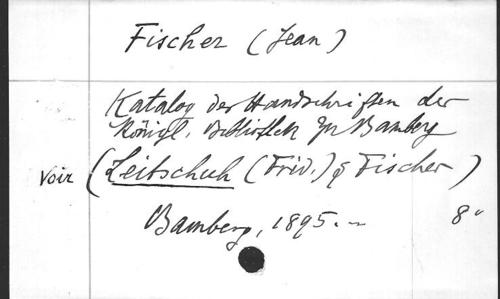 Fischer (Jean)
Katalog der Handschriften der
Königl. Bibliothek zu Bamberg
Voir (Leitschuh (Frid.) & Fischer)
Bamberg, 1895.- 8°